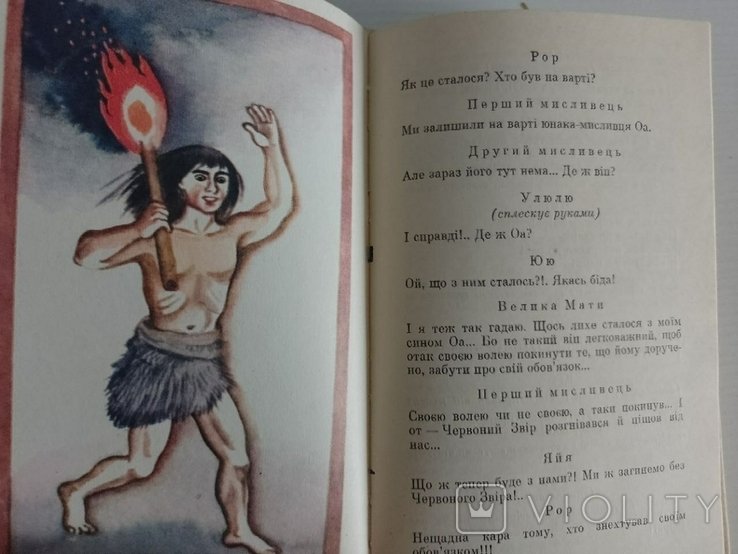 Рор
Як це сталося? Хто був на варті?
Перший мисливець
Ми залишили на варті юнака-мисливця Оа.
Другий мисливець
Але зараз його тут нема... Де ж він?
Улюлю
(сплескує руками)
І справді!.. Де ж Оа?
Юю
Ой, що з ним сталось?!. Якась біда!
Велика Мати
І я теж так гадаю. Щось лихе сталося з моїм
сином Оа... Бо не такий він легковажний, щоб
отак своєю волею покинути те, що йому доруче-
но, забути про свій обов'язок...
Перший мисливець
Своєю волею чи не своєю, а таки покинув... І
от — Червоний Звір розгнівався й пішов від
нас...
Яйя
Що ж тепер буде з нами?! Ми ж загинемо без
Червоного Звіра!..
Рор
Нещадна кара тому, хто знехтував своїм
обов'язком!!!
VIOLITY